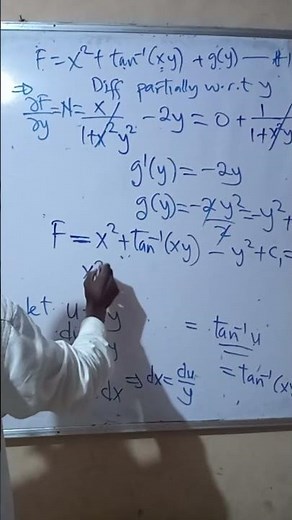 F = x² + tan⁻¹(xy) + g(y) —
Diff partially w.r.t y
⇒ ∂F/∂y = N = x/1+x²y² - 2y = 0 + 1/1+x²y
g'(y) = -2y
g(y) = -2y²/2 = -y²+
F = x² + tan⁻¹(xy) - y² + C₁ =
x²
let u = y = tan⁻¹u
du y
dx ⇒ dx = du/y = tan⁻¹(x